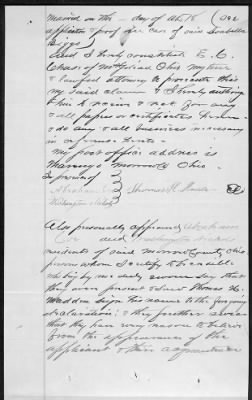 married on the — day of 18 (see
applicant & proof for case of said Isabella
Biggs)
And I hereby constitute E. C.
Chase of Mt Gilead Ohio my true
& lawful attorney to prosecute this
my said claim & I hereby authorize
him to receive & rect for any
& all papers or certificates &
do any & all business necessary
in reference thereto.
My post office address is
Marengo Morrow Co Ohio.
In presence of
Abraham Thomas H. Madden
Washington
Also personally appeared Abraham
and Washington
residents of said Morrow County Ohio,
persons whom I certify to be credible
who being by me duly sworn say that
they were present & saw Thomas H.
Madden sign his name to the foregoing
declaration; & they further swear
that they have every reason to believe
from the appearance of the
applicant & their acquaintance